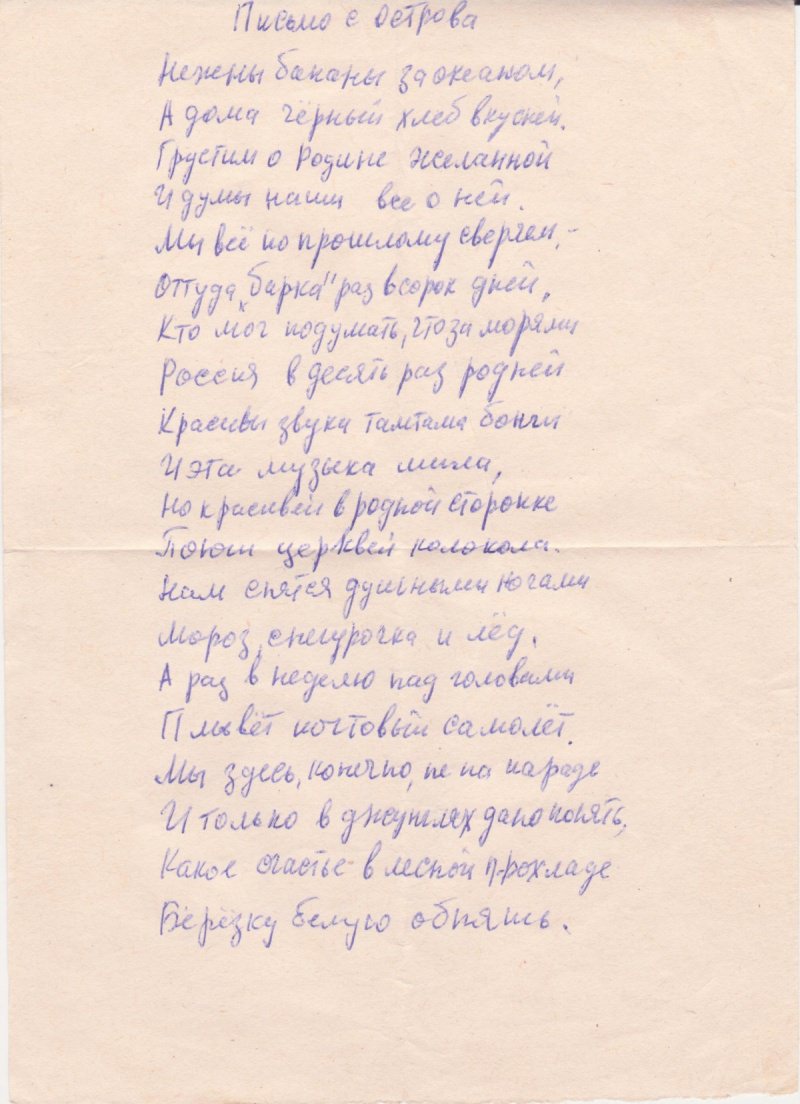 Письмо с острова
Нежны бананы за океаном,
А дома чёрный хлеб вкусней.
Грустим о Родине желанной
И думы наши все о ней.
Мы всё по прошлому сверяем, -
Оттуда „барка" раз в сорок дней,
Кто мог подумать, что за морями
Россия в десять раз родней
Красивы звуки тамтама бонги
И эта музыка мила,
Но красивей в родной сторонке
Поют церквей колокола.
Нам снятся душными ночами
Мороз, снегурочка и лёд.
А раз в неделю над головами
Плывёт почтовый самолёт.
Мы здесь, конечно, не на параде
И только в джунглях дано понять,
Какое счастье в лесной прохладе
Берёзку белую обнять.